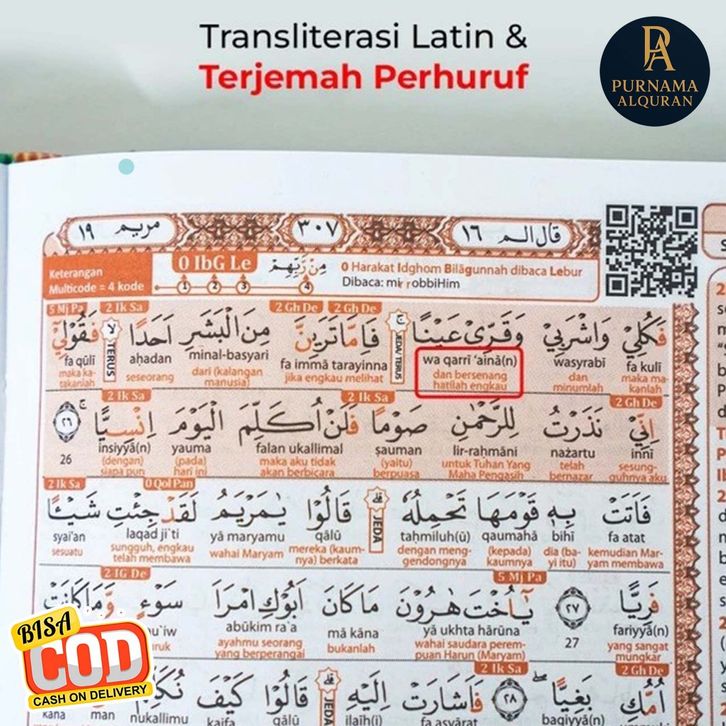 Transliterasi Latin &
Terjemah Perhuruf
PA
PURNAMA
ALQURAN
مريم ١٩
٣٠٧
قال الم ١٦
Keterangan
Multicode = 4 kode
0 IbG Le
مِنْ رَّبِّهِمْ
1 2 3 4
0 Harakat Idghom Bilāgunnah dibaca Lebur
Dibaca: mir robbiHim
5 Mj Pa 2 Ik Sa 2 Gh De 2 Gh De
فَكُلِيْ وَاشْرَبِيْ وَقَرِّيْ عَيْنًا JEDA/ TERUS فَاِمَّا تَرَيِنَّ مِنَ الْبَشَرِ اَحَدًا TERUS فَقُوْلِيْٓ
fa kulī wasyrabī wa qarrī ‘ainā(n) fa immā tarayinna minal-basyari aḥadan fa qūlī
maka ma-kanlah dan minumlah dan bersenang hatilah engkau jika engkau melihat dari (kalangan manusia) seseorang maka ka-takanlah
2 Ik Sa 2 Ik Sa 2 Gh De
اِنِّيْ نَذَرْتُ لِلرَّحْمٰنِ صَوْمًا فَلَنْ اُكَلِّمَ الْيَوْمَ اِنْسِيًّا ٢٦
innī nażartu lir-raḥmāni ṣauman falan ukallimal yauma insiyyā(n) 26
sesung-guhnya aku telah bernazar untuk Tuhan Yang Maha Pengasih (yaitu) berpuasa maka aku tidak akan berbicara (pada) hari ini (dengan) siapa pun
2 Ik Sa 0 Qol Pan
فَاَتَتْ بِهٖ قَوْمَهَا تَحْمِلُهٗ JEDA قَالُوْا يٰمَرْيَمُ لَقَدْ جِئْتِ شَيْـًٔا
fa atat bihī qaumahā taḥmiluh(ū) qālū yā maryamu laqad ji'ti syai'an
kemudian Mar-yam membawa dia (ba-yi itu) (kepada) kaumnya dengan meng-gendongnya mereka (kaum-nya) berkata wahai Maryam sungguh, engkau telah membawa sesuatu
2 IG De 5 Mj Pa
فَرِيًّا ٢٧ يٰٓاُخْتَ هٰرُوْنَ مَا كَانَ اَبُوْكِ امْرَاَ سَوْءٍ وَّمَا كَانَتْ
fariyyā(n) 27 yā ukhta hārūna mā kāna abūkim ra'a
yang sangat mungkar wahai saudara perem-puan Harun (Maryam) bukanlah ayahmu seorang yang berperangai
2 Ik Sa 2 Gh De
اُمُّكِ بَغِيًّا ٢٨ فَاَشَارَتْ اِلَيْهِ JEDA قَالُوْا كَيْفَ نُكَلِّمُ
baġiyyā(n) fa asyārat ilaih(i) qālū kaifa nukallimu man kāna
BISA
COD
CASH ON DELIVERY